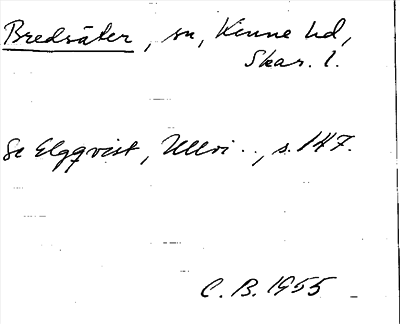 Bredsäter, sn, Kinne hd,
Skar. l.
Se Elgqvist, Ullvi.., s. 147.
C. B. 1955